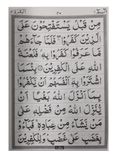 مِنْ قَبْلُ يَسْتَفْتِحُونَ عَلَى
الَّذِينَ كَفَرُوا فَلَمَّا جَاءَهُمْ
مَا عَرَفُوا كَفَرُوا بِهِ فَلَعْنَةُ
اللَّهِ عَلَى الْكَفِرِينَ بِئْسَمَا
اشْتَرَوْا بِهِ أَنْفُسَهُمْ أَنْ يَكْفُرُوا
بِمَا أَنْزَلَ اللَّهُ بَغْيًا أَنْ
يُنَزِّلَ اللَّهُ مِنْ فَضْلِهِ عَلَى
مَنْ يَشَاءُ مِنْ عِبَادِهِ فَبَاءُوا